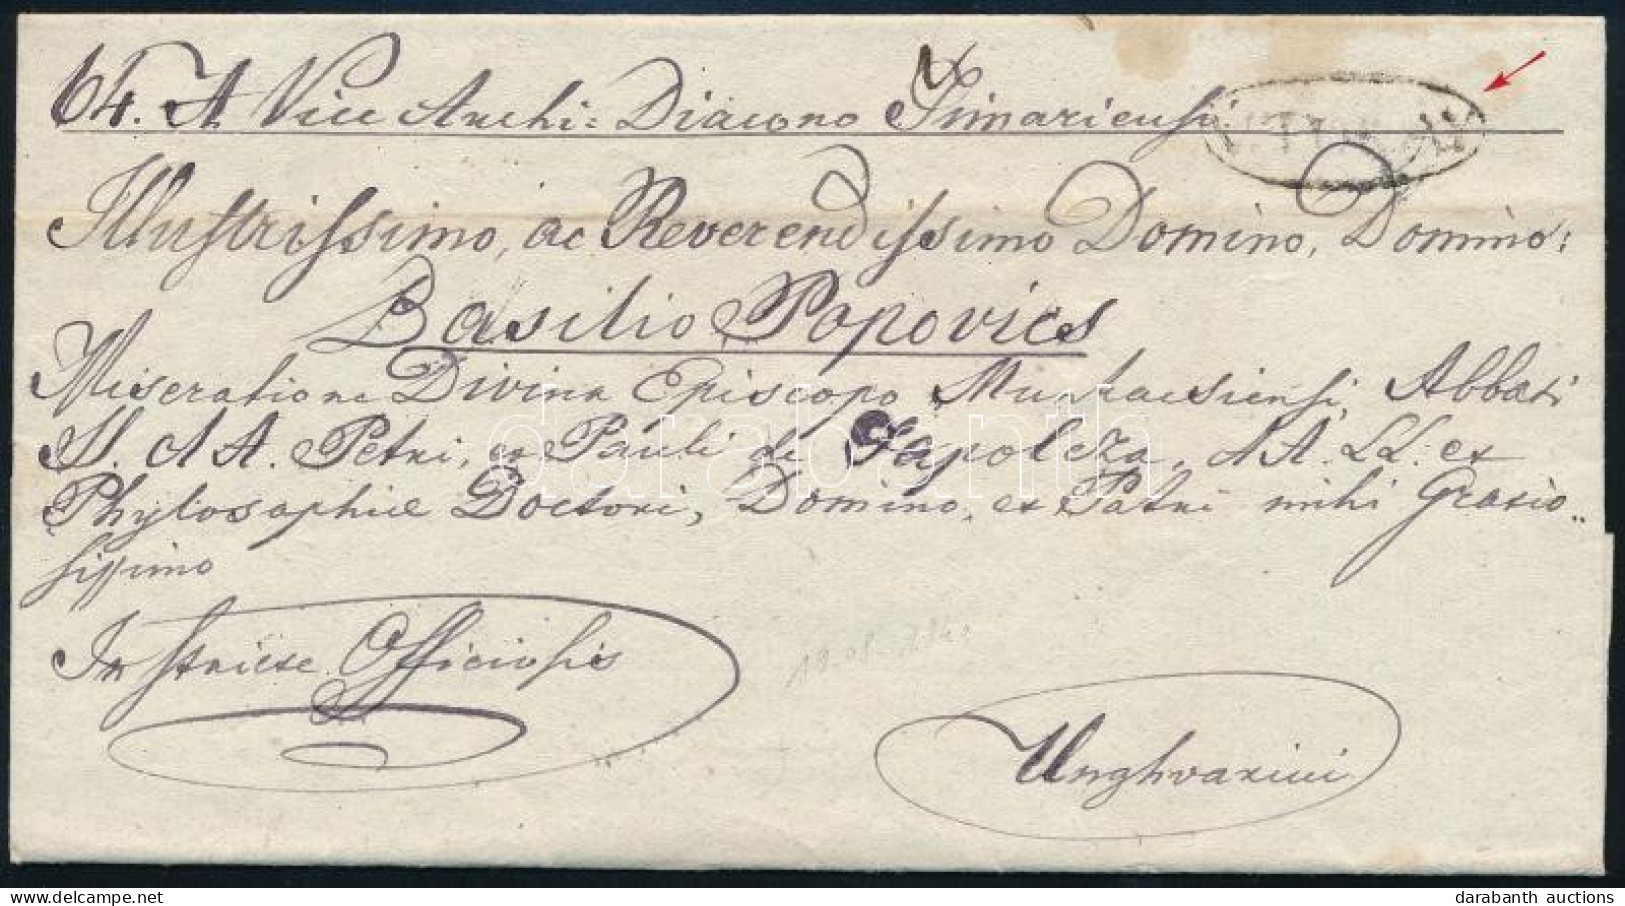 64. A Vice Archi: Diacono
Illustrissimo, ac Reverendissimo Domino, Domino:
Basilio Popovics
Miseratione Divina Episcopo Munkacsiensi, Abbati
S. S. A A. Petri, et Pauli de Tapolcza, A A. LL. et
Phylosophiae Doctori, Domino, et Patri mihi Gratio„
sissimo
Officiosis
Unghvarini
darabanth
darabanth auctions